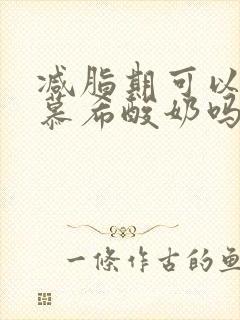 减脂期可以
慕希酸奶吗
一條作古的魚